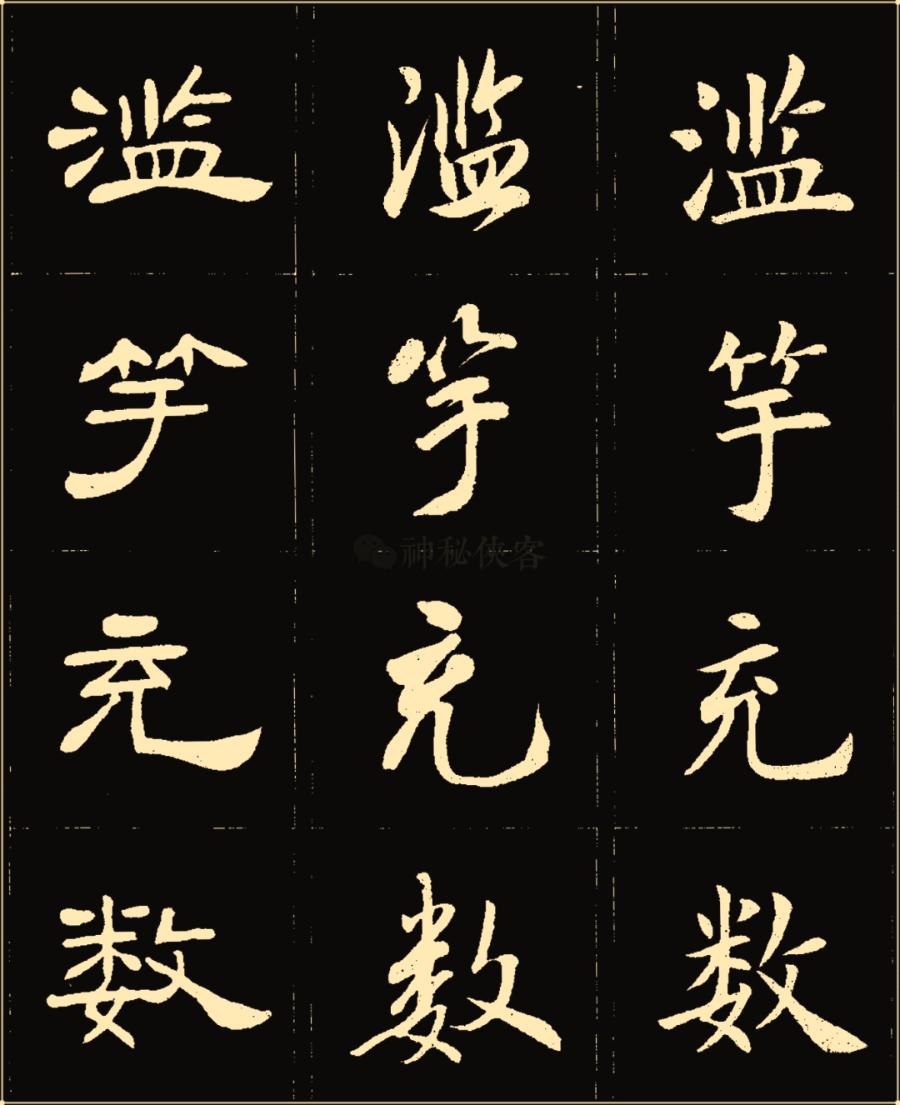 滥竽充数
滥竽充数
滥竽充数
神秘俠客